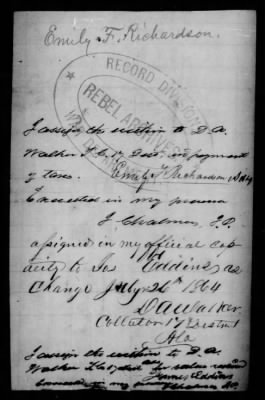 Emily F. Richardson.
RECORD DIVISION
REBEL ARCHIVES
WAR
I assign the within to D. A.
Walker T. C. 17 Dist. in payment
of taxes. Emily F Richardson
Executed in my presence
J. Chalmers, J.P.
assigned in my official cap
acity to Jas Eddins as
Change July 26th 1864
D A Walker
Collector 17 District
Ala
I assign the within to D. A.
Walker
James Eddins
in my